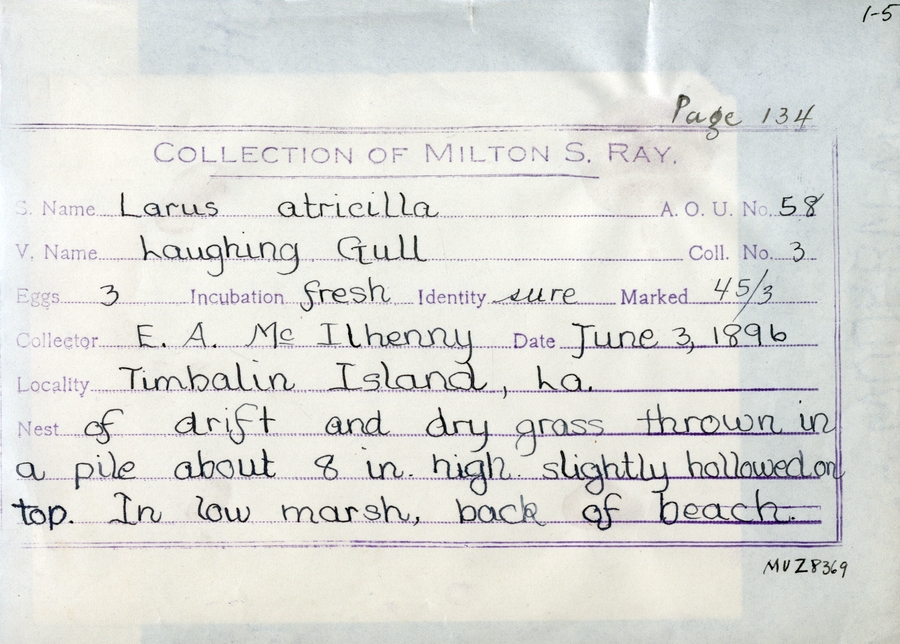 1-5
Page 134
COLLECTION OF MILTON S. RAY.
S. Name Larus atricilla A. O. U. No. 58
V. Name Laughing Gull Coll. No. 3
Eggs 3 Incubation fresh Identity sure Marked 45/3
Collector E. A. Mc Ilhenny Date June 3, 1896
Locality Timbalin Island, La.
Nest of drift and dry grass thrown in
a pile about 8 in. high slightly hollowed on
top. In low marsh, back of beach.
MVZ8369